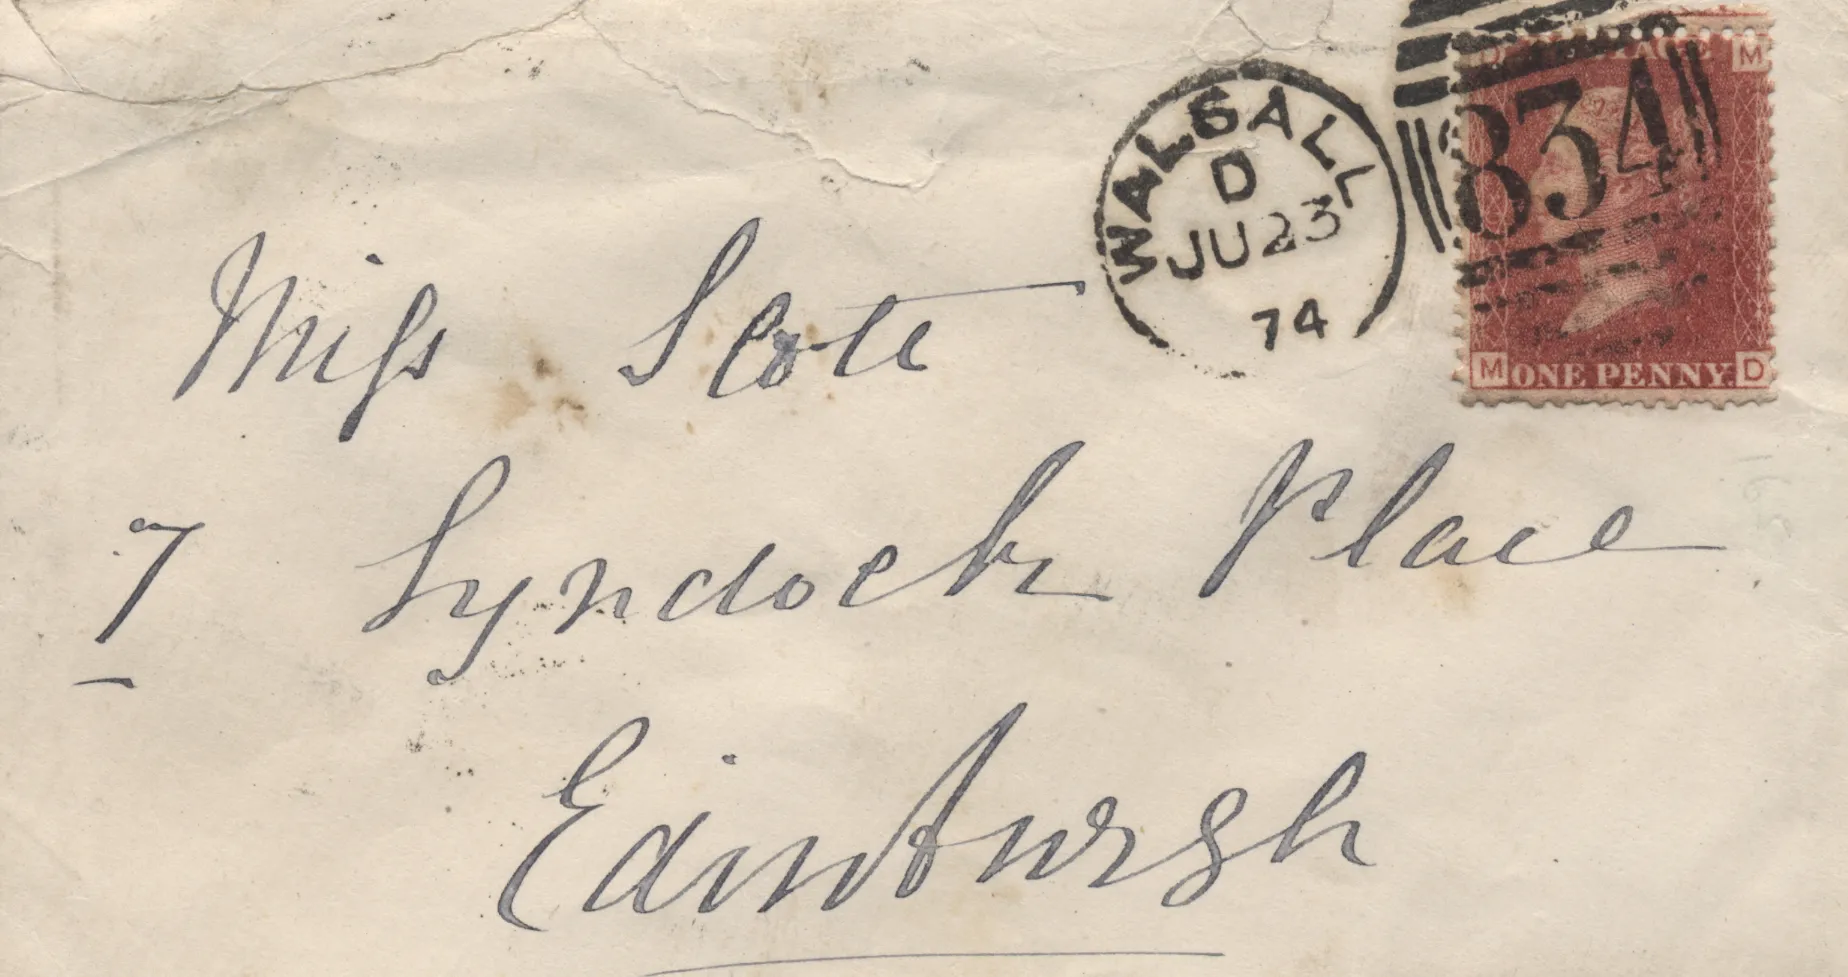 WALSALL
D
JU 23
74
834
D M
M ONE PENNY. D
Miss Scott
7 Lyndoch Place
Edinburgh